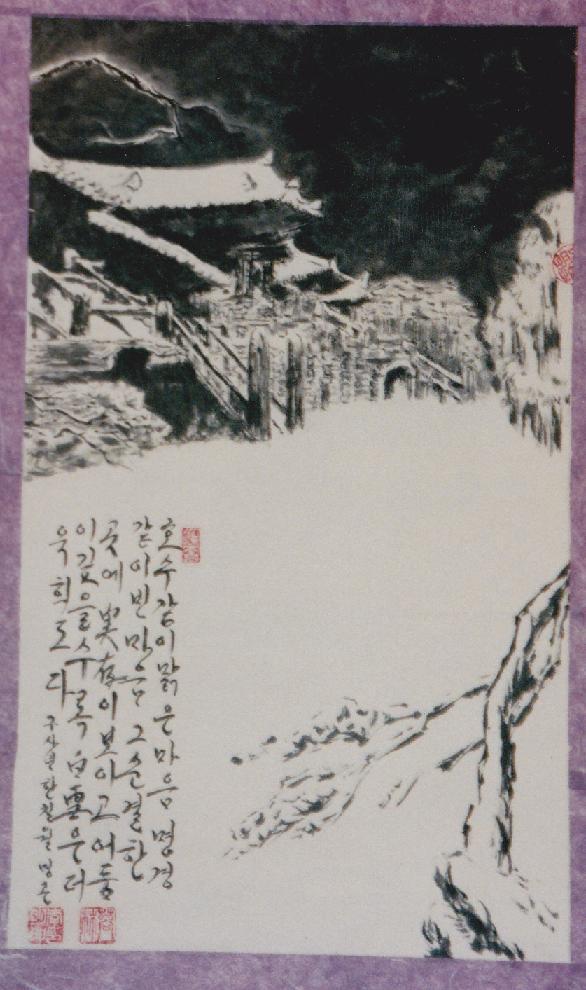 호수같이 맑은 마음 명경
같이 빈 마음 그 순결한
곳에 実存이 보이고 어둠
이 깊을수록 白雲은 더
욱 희도다
구사년 한겨울